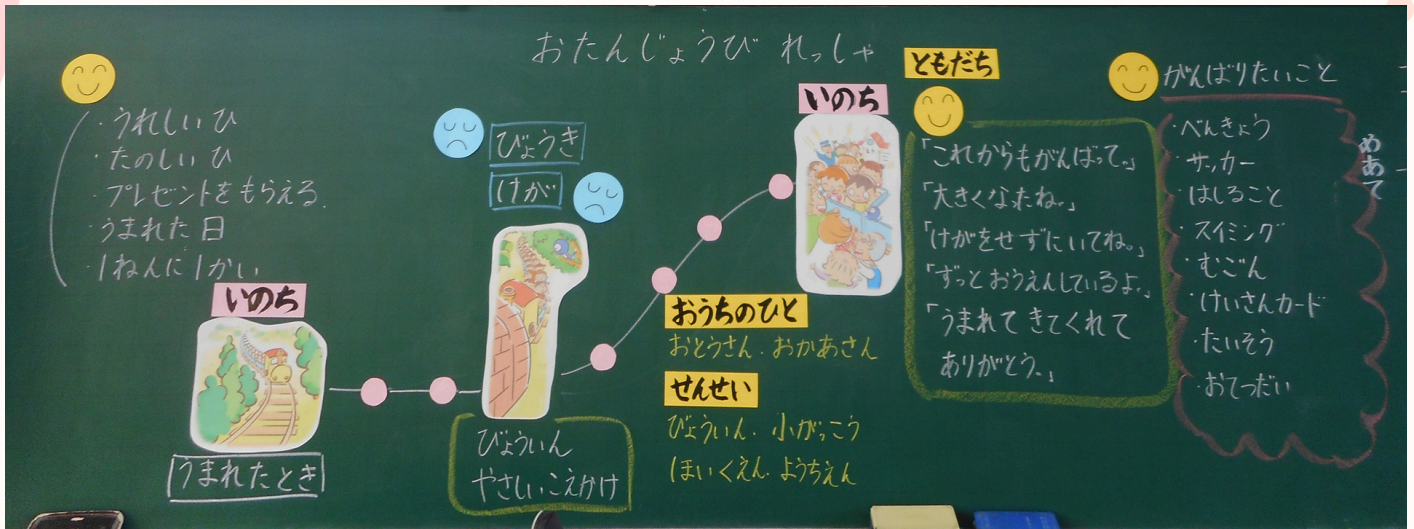 おたんじょうび れっしゃ
・うれしい ひ
・たのしい ひ
・プレゼントをもらえる.
・うまれた 日
・1ねんに1かい
いのち
うまれたとき
びょうき
けが
びょういん
やさしいこえかけ
いのち
おうちのひと
おとうさん.おかあさん
せんせい
びょういん.小がっこう
ほいくえん.ようちえん
ともだち
「これからもがんばって。」
「大きくなたね。」
「けがをせずにいてね。」
「ずっとおうえんしているよ。」
「うまれて きてくれて
ありがとう。」
がんばりたいこと
・べんきょう
・サッカー
・はしること
・スイミング
・むごん
・けいさんカード
・たいそう
・おてつだい
めあて